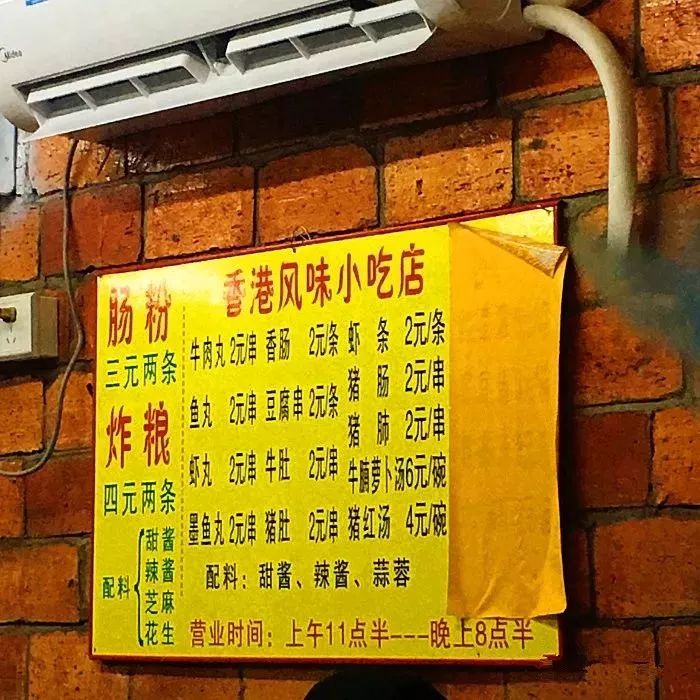 Midea
香港风味小吃店
肠粉
三元两条
炸粮
四元两条
配料 甜酱
辣酱
芝麻
花生
牛肉丸 2元/串 香肠 2元/条 虾条 2元/条
鱼丸 2元/串 豆腐串 2元/条 猪肠 2元/串
猪肺 2元/串
虾丸 2元/串 牛肚 2元/串 牛腩萝卜汤 6元/碗
墨鱼丸 2元/串 猪肚 2元/串 猪红汤 4元/碗
配料：甜酱、辣酱、蒜蓉
营业时间：上午11点半---晚上8点半